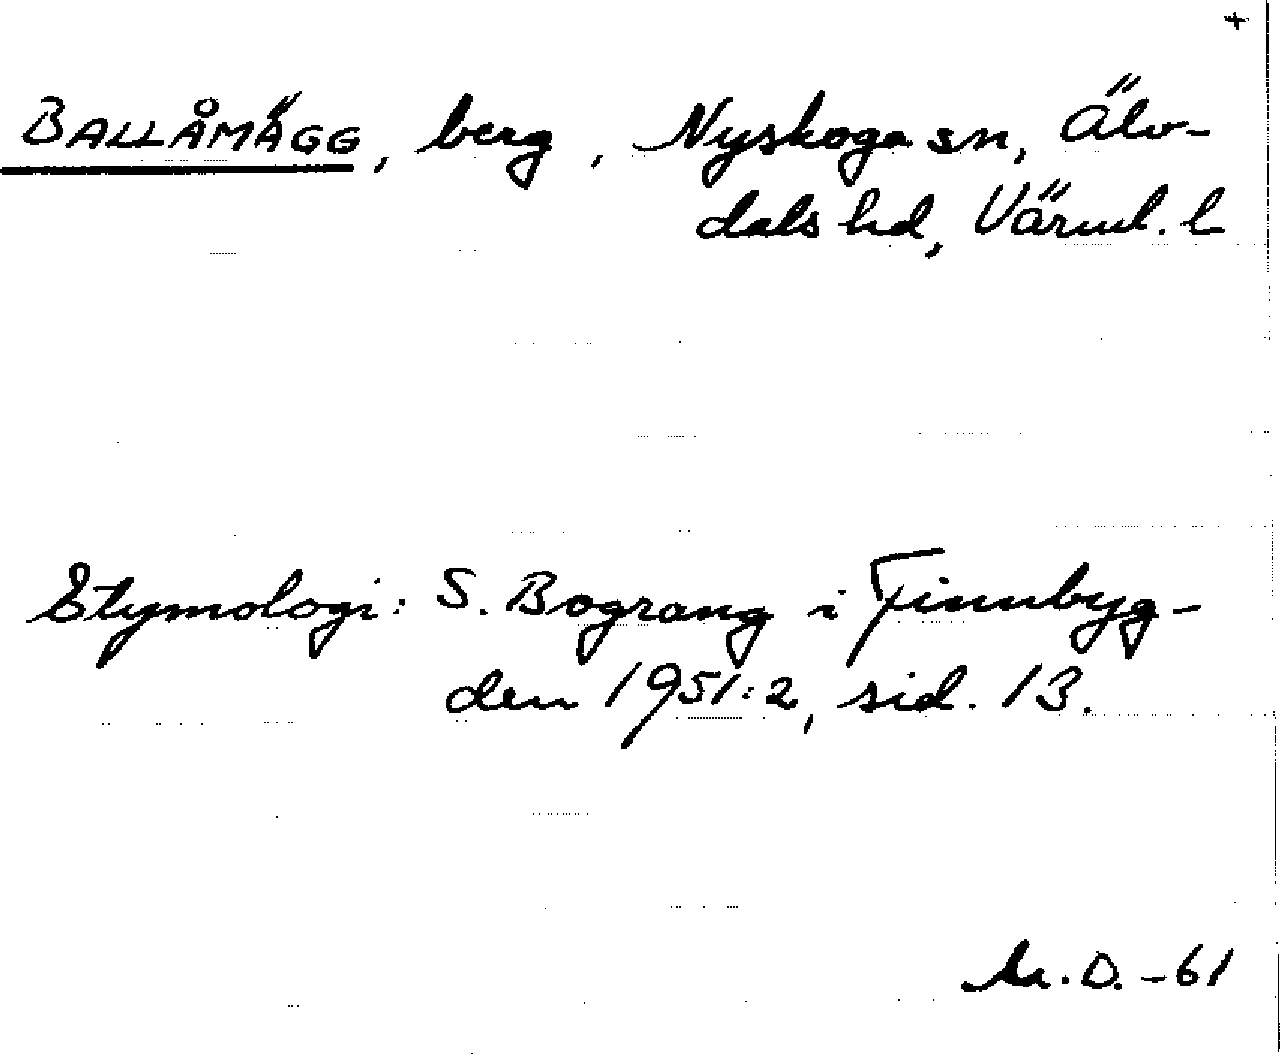 +
BALLÅMÄGG, berg, Nyskoga sn, Älv-
dals hd, Värml. l
Etymologi: S. Bograng i Finnbyg-
den 1951:2, sid. 13.
D. -61